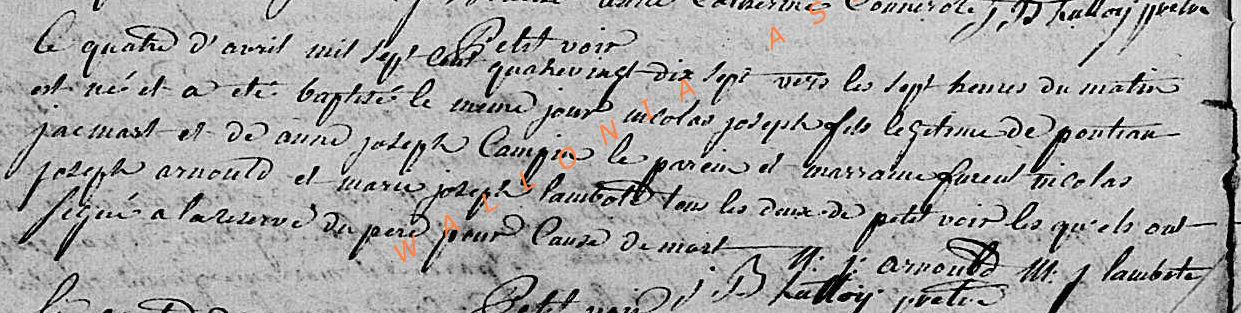 anne Catherine Connerote J B hulloy pretre
Petit voir
Le quatre d'avril mil sept cent quatrevingt dix sept vers les sept heures du matin
est né et a eté baptisé le meme jour nicolas joseph fils legitime de pontian
jacmart et de anne joseph Campin le parein et marraine furent nicolas
joseph arnould et marie joseph lambote tous les deux de petit voir les quels ont
signé a la reserve du pere pour Cause de mort
N. j. arnould M. j lambote
J B hulloy pretre
Petit voir
WALLONIA AS